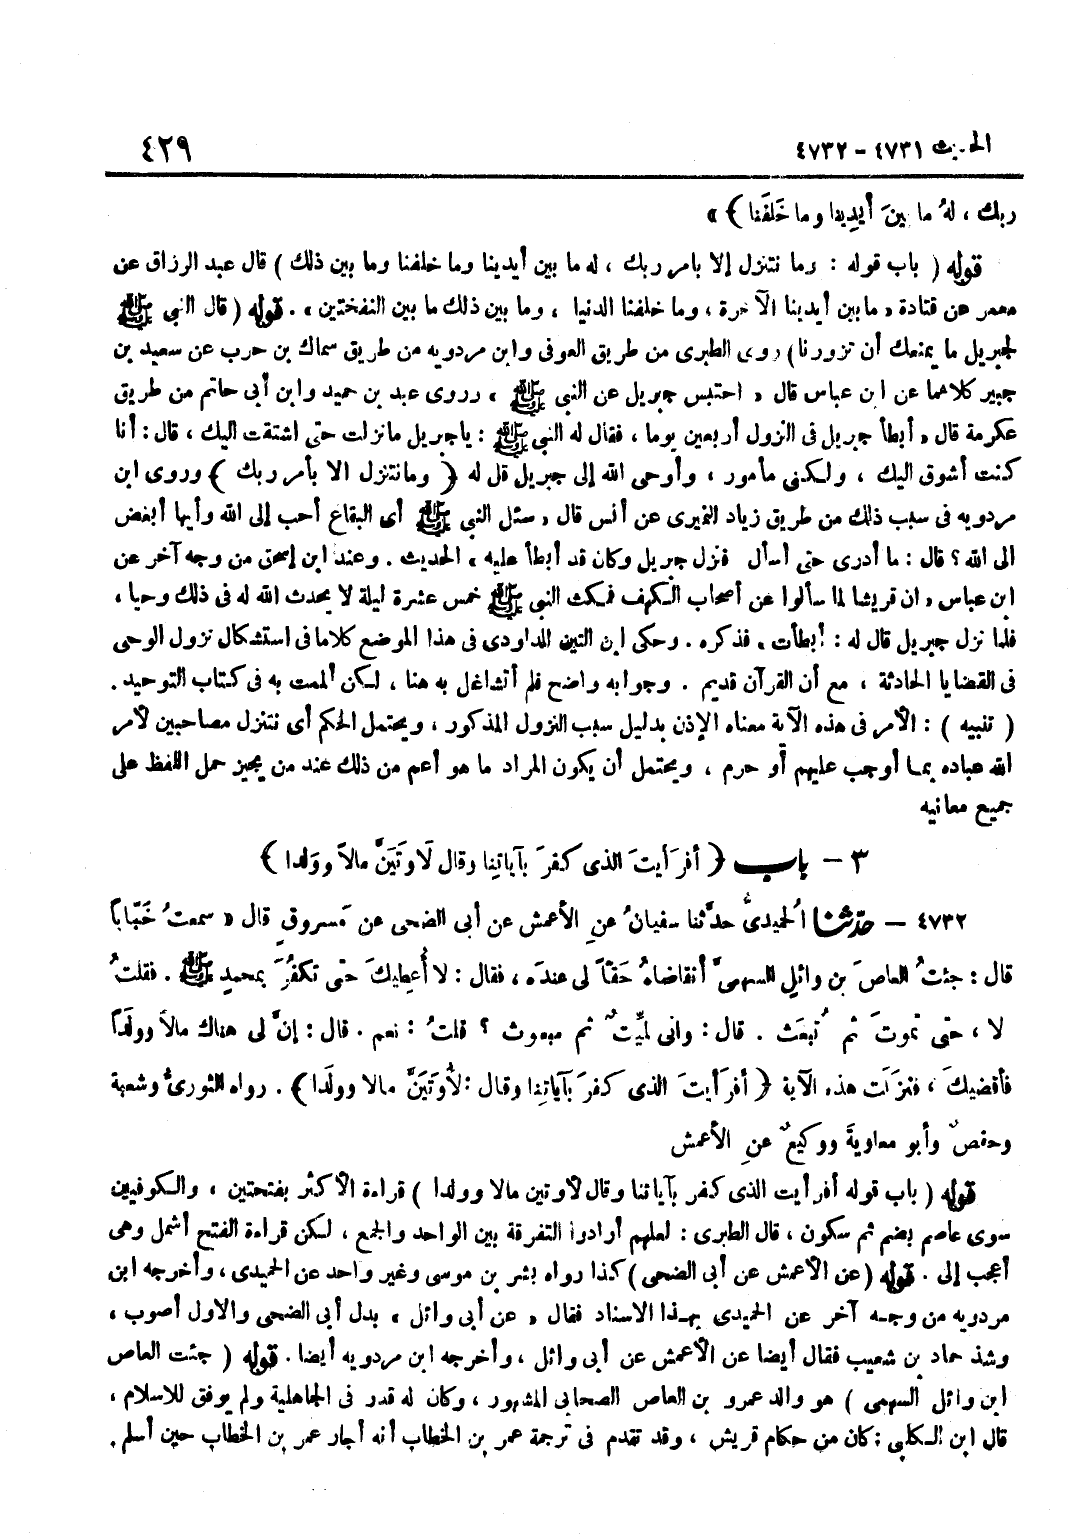 الحديث ٤٧٣١ - ٤٧٣٢ ٤٢٩
ربك ، لهُ ما بينَ أيدِينا وما خَلفَنا ﴾ »
قوله ( باب قوله : وما نتنزل إلا بامر ربك ، له ما بين أيدينا وما خلفنا وما بين ذلك ) قال عبد الرزاق عن
معمر عن قتادة « ما بين أيدينا الآخرة ، وما خلفنا الدنيا ، وما بين ذلك ما بين النفختين » . قوله ( قال النبي ﷺ
لجبريل ما يمنعك أن تزورنا ) روى الطبرى من طريق العوفى وابن مردويه من طريق سماك بن حرب عن سعيد بن
جبير كلاهما عن ابن عباس قال « احتبس جبريل عن النبي ﷺ » وروى عبد بن حميد وابن أبى حاتم من طريق
عكرمة قال « أبطأ جبريل فى النزول أربعين يوما ، فقال له النبي ﷺ : ياجبريل مانزلت حتى اشتقت اليك ، قال : أنا
كنت أشوق اليك ، ولكنى مأمور ، وأوحى الله إلى جبريل قل له ﴿ ومانتنزل الا بأمر ربك ﴾ وروى ابن
مردويه فى سبب ذلك من طريق زياد النميرى عن أنس قال « سئل النبي ﷺ أى البقاع أحب إلى الله وأيها أبغض
الى الله ؟ قال : ما أدرى حتى أسأل فنزل جبريل وكان قد أبطأ عليه » الحديث . وعند ابن إسحق من وجه آخر عن
ابن عباس « ان قريشا لما سألوا عن أصحاب الكهف فمكث النبي ﷺ خمس عشرة ليلة لا يحدث الله له فى ذلك وحيا ،
فلما نزل جبريل قال له : أبطأت » فذكره . وحكى ابن التين للداودى فى هذا الموضع كلاما فى استشكال نزول الوحى
فى القضايا الحادثة ، مع أن القرآن قديم . وجوابه واضح فلم أتشاغل به هنا ، لكن ألممت به فى كتاب التوحيد .
( تنبيه ) : الأمر فى هذه الآية معناه الإذن بدليل سبب النزول المذكور ، ويحتمل الحكم أى نتنزل مصاحبين لأمر
الله عباده بما أوجب عليهم أو حرم ، ويحتمل أن يكون المراد ما هو أعم من ذلك عند من يجيز حمل اللفظ على
جميع معانيه
٣ - باب ﴿ أفرَأيتَ الذى كفرَ بآياتِنا وقال لَأوتَيَنَّ مالاً ووَلدا ﴾
٤٧٣٢ - حدّثنا الحُميدىُّ حدَّثنا سفيانُ عنِ الأعمش عن أبى الضحى عن مَسروقٍ قال « سمعتُ خَبّاباً
قال : جئتُ العاصَ بن وائلٍ السهمىَّ أتقاضاهُ حَقّاً لى عندَه ، فقال : لا أُعطِيكَ حتّى تكفُرَ بمحمدٍ ﷺ . فقلتُ
لا ، حتّى تموتَ ثم تُبعَث . قال : وانى لميِّتٌ ثم مبعوث ؟ قلتُ : نعم . قال : إنَّ لى هناك مالاً وولَداً
فأقضيكَ ، فنزَلَت هذه الآية ﴿ أفرأيتَ الذى كفرَ بآياتِنا وقال : لأُوتَيَنَّ مالا وولَدا ﴾ . رواه الثورىُّ وشعبة
وحفصٌ وأبو معاويةَ ووكيعٌ عنِ الأعمش
قوله ( باب قوله أفرأيت الذى كفر بآياتنا وقال لأوتين مالا وولدا ) قراءة الأكثر بفتحتين ، والكوفيين
سوى عاصم بضم ثم سكون ، قال الطبرى : لعلهم أرادوا التفرقة بين الواحد والجمع ، لكن قراءة الفتح أشمل وهى
أعجب إلى . قوله ( عن الأعمش عن أبى الضحى ) كذا رواه بشر بن موسى وغير واحد عن الحميدى ، وأخرجه ابن
مردويه من وجه آخر عن الحميدى بهذا الاسناد فقال « عن أبى وائل » بدل أبى الضحى والاول أصوب ،
وشذ حماد بن شعيب فقال أيضا عن الأعمش عن أبى وائل ، وأخرجه ابن مردويه أيضا . قوله ( جئت العاص
ابن وائل السهمى ) هو والد عمرو بن العاص الصحابى المشهور ، وكان له قدر فى الجاهلية ولم يوفق للاسلام ،
قال ابن الكلبى : كان من حكام قريش ، وقد تقدم فى ترجمة عمر بن الخطاب أنه أجار عمر بن الخطاب حين أسلم .